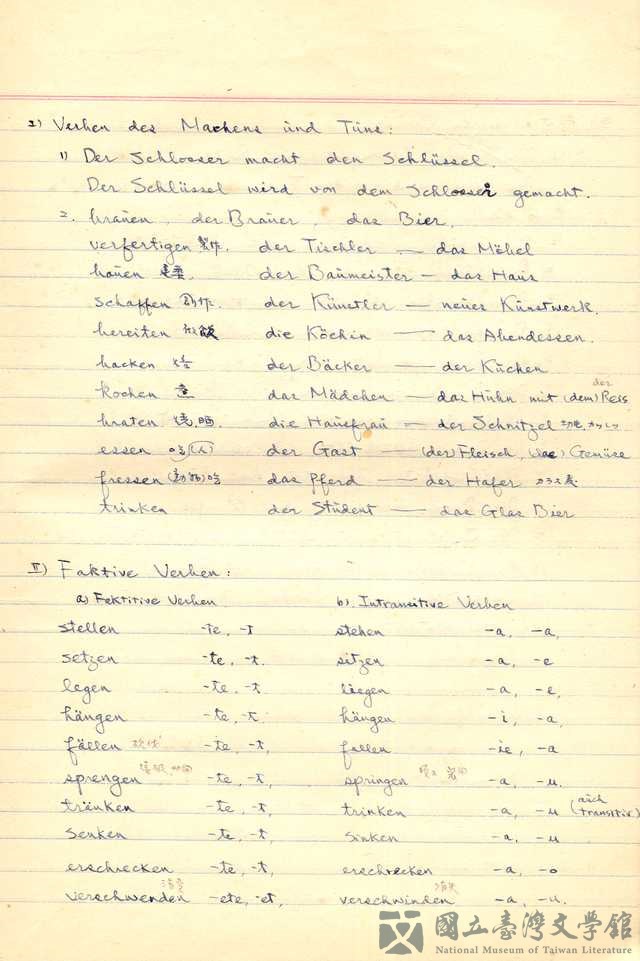 I) Verben des Machens und Tuns:
1) Der Schlosser macht den Schlüssel.
Der Schlüssel wird von dem Schlosser gemacht.
2. brauen, der Brauer, das Bier,
verfertigen 製作. der Tischler — das Möbel
bauen der Baumeister — das Haus
schaffen 創作. der Künstler — neues Kunstwerk.
bereiten der Köchin — das Abendessen.
backen der Bäcker — der Kuchen
der
kochen das Mädchen — das Huhn mit (dem) Reis
braten die Hausfrau — der Schnitzel
essen der Gast — (der) Fleisch, (das) Gemüse
fressen (動物) 吃 das Pferd — der Hafer
trinken der Student — das Glas Bier
II) Faktive Verben:
a) Faktitive Verben b). Intransitive Verben
stellen -te, -t stehen -a, -a,
setzen -te, -t. sitzen -a, -e
legen -te, -t. liegen -a, -e,
hängen -te, -t hängen -i, -a,
fällen 砍伐 -te, -t, fallen -ie, -a
sprengen -te, -t, springen -a, -u.
tränken -te, -t, trinken -a, -u (auch transitiv)
senken -te, -t, sinken -a, -u
erschrecken -te, -t, erschrecken -a, -o
verschwenden -ete, -et, verschwinden 消失 -a, -u.
國立臺灣文學館
National Museum of Taiwan Literature